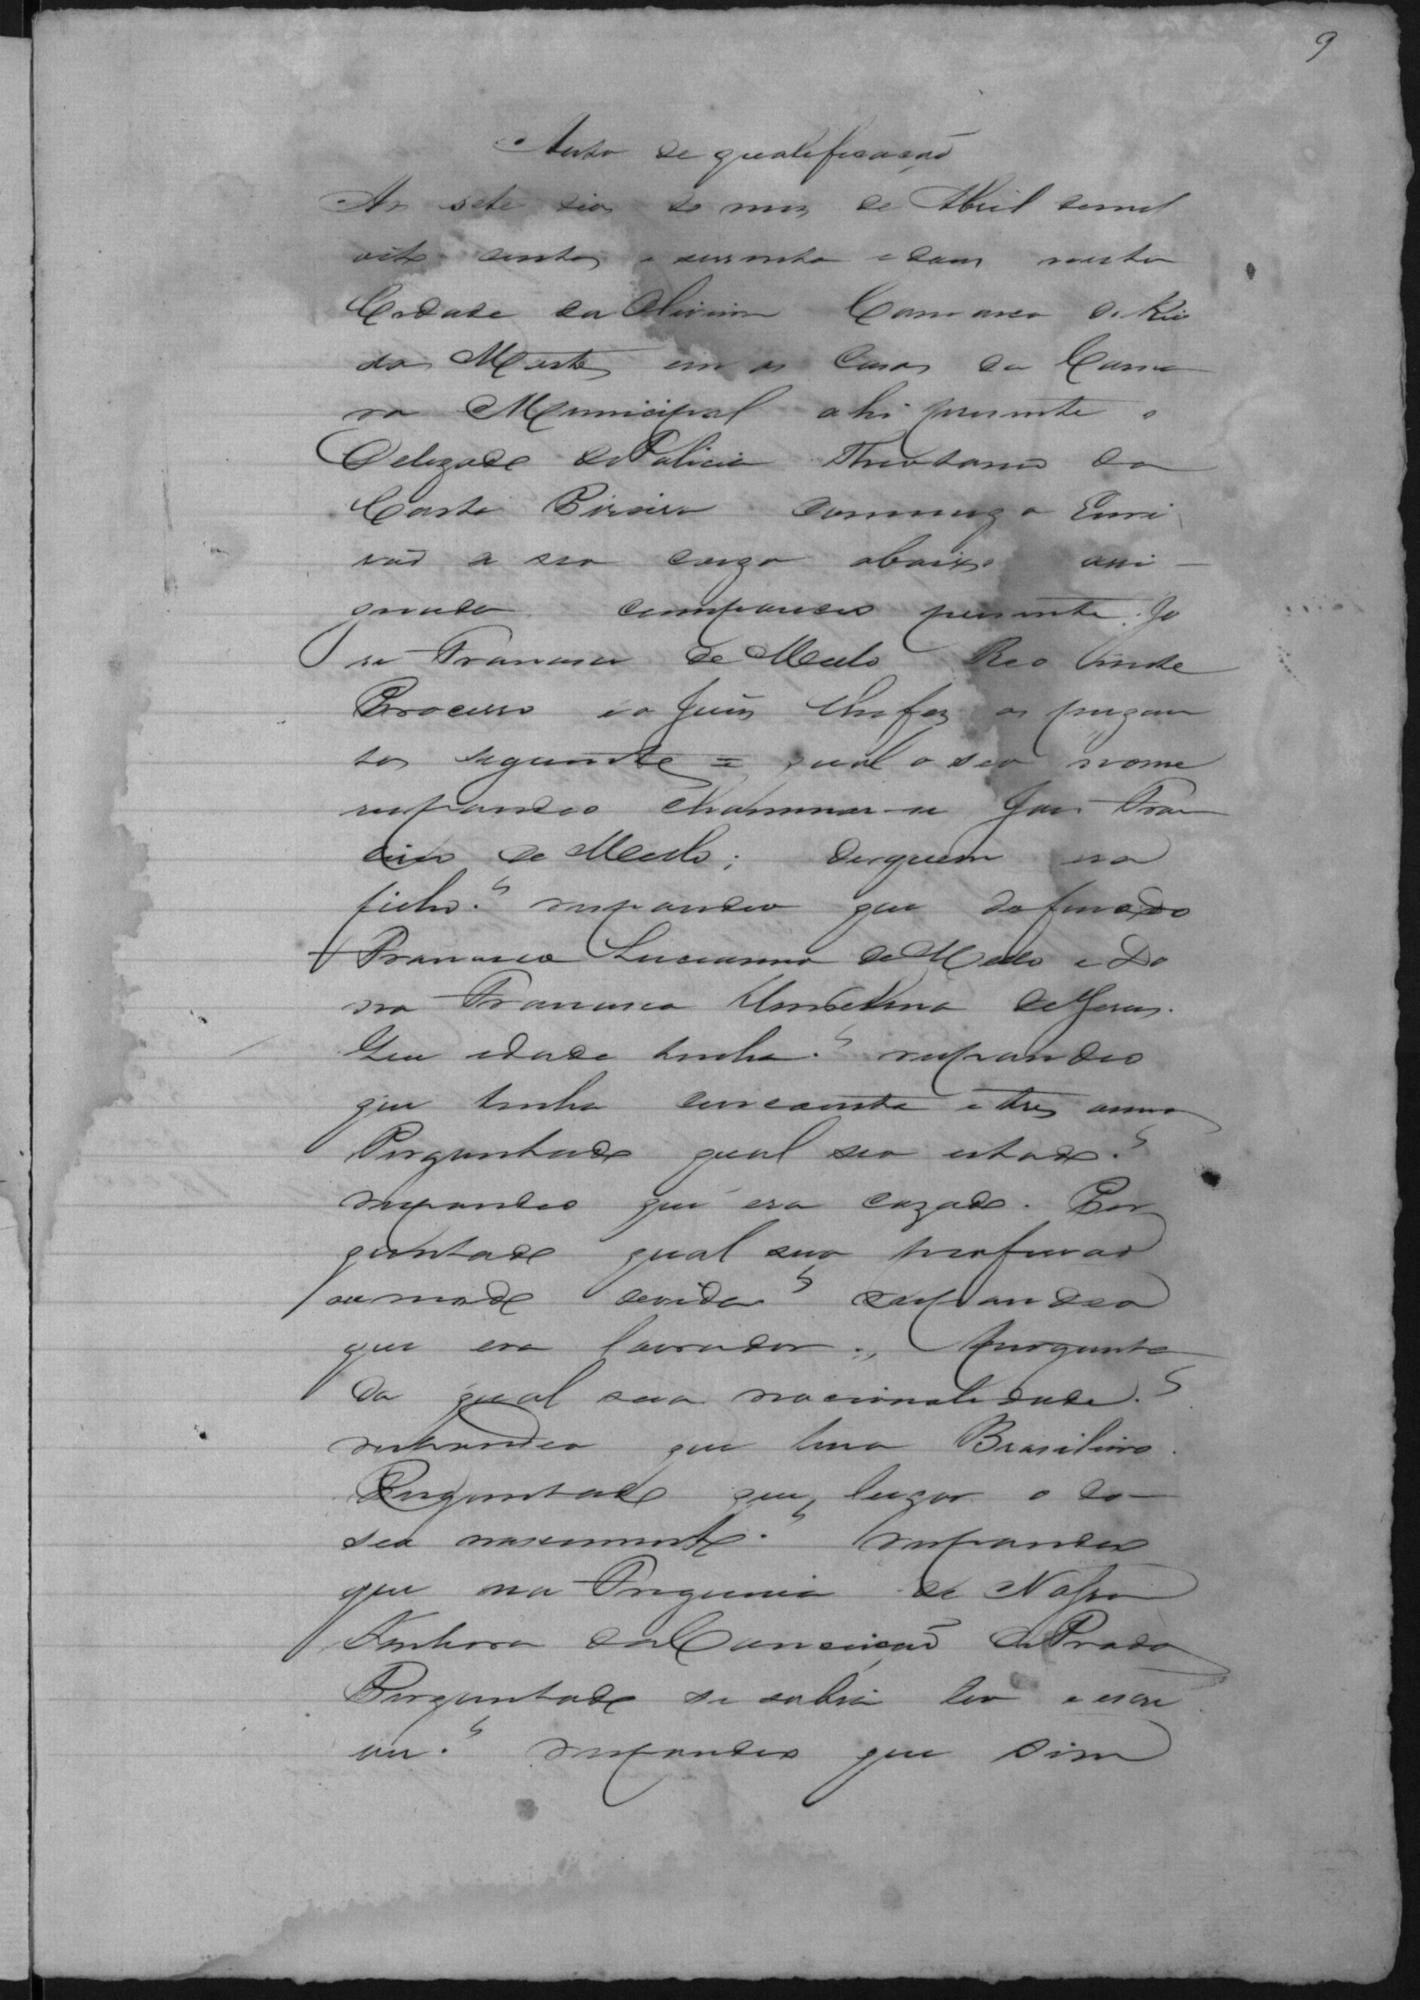 9
Auto de qualificação
Ao sete dias do mes de Abril demil
oito centos e sessenta e dous nesta
Cidade da Oliveira Comarca do Rio
das Mortes em as Casas da Cama
ra Municipal ahi presente o
Delegado de Policia Theotonio da
Costa Pereira commigo Escri
vaõ a seo cargo abaixo assi
gnado compareceo presente Jo
se Francisco de Mello Reo neste
Processo e o Juis lhe fez as pregun
tas seguinte = qual o seo nome
respondeo chammar-se Jose Fran
cisco de Mello; de quem era
filho? respondeo que do finado
Francisco Lucianno de Mello e Do
na Francisca Umbelina de Jesus.
Que idade tinha? respondeo
que tinha cincoenta e tres annos
Perguntado qual seo estado?
respondeo que era cazado. Per
guntado qual sua profissaõ
ou modo de vida? respondeo
que era lavrador., Pergunta
do qual sua nacionalidade?
respondeo que hera Brasileiro.
Perguntado que lugar o do
seo nascimento? respondeo
que na Freguesia de Nossa
Senhora da Conceiçaõ do Prado
Perguntado se sabia ler e escre
ver? respondeo que sim